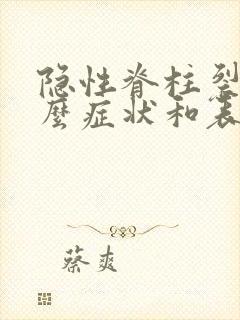 隐性脊柱裂
麼症状和表
蔡爽